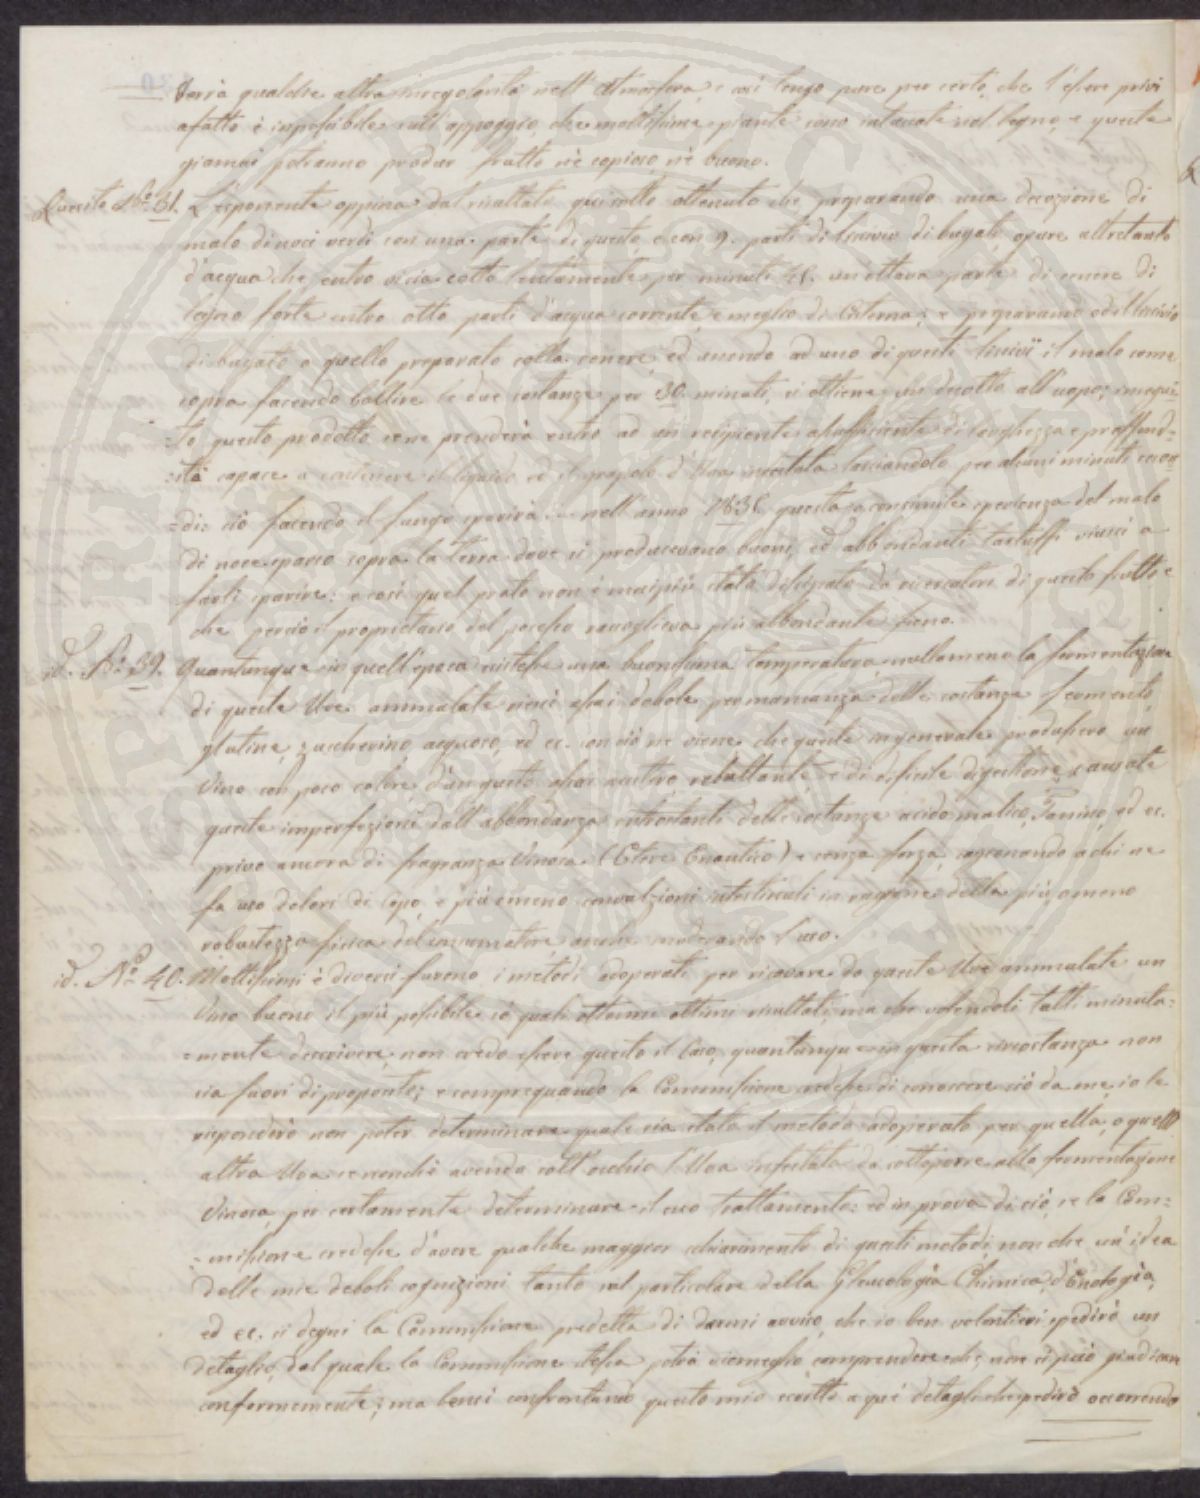 verrà qualche altra irregolarità nell'Atmosfera, e così tengo pure per certo, che l'essere privi
afatto è impossibile sull'appoggio, che moltissime piante sono intaccate nel legno, e queste
giamai potranno produr frutto nè copioso nè buono.
Quesito No. 31. L'esponente oppina dal risultato qui sotto ottenuto che preparando una decozione di
malo di noci verdi con una parte di questo e con 9. parti di liscivio di bugato, opure altretanto
d'acqua che entro sia cotto lentamente per minuti 45. un'ottava parte di cenere di
legno forte entro otto parti d'acqua corrente, e meglio di Cisterna; e preparando od il liscivio
di bugato o quello preparato colla cenere, ed unendo ad uno di questi liscivii il malo come
sopra facendo bollire le due sostanze per 30. minuti, si ottiene un decotto all'uopo; insegui=
=to questo prodotto se ne prenderà entro ad un recipiente assufficiente di larghezza e proffond=
=ità capace a contenere il liquido ed il grapolo d'Uva infestata lasciandolo per alcuni minuti
=di: ciò facendo il fungo sparirà nell'anno 1836 questa consimile sperienza del malo
di noce sparso sopra la terra dove si producevano buoni, ed abbondanti tartuffi riuscì a
farli sparire: e così quel prato non è mai più stato dissipato da ricercatori di questo frutto e
che perciò il proprietario del possesso raccoglieva più abbondante fieno.
id. No. 39. Quantunque in quell'epoca esistesse una buonissima temperatura, nullameno la fermentazione
di queste Uve ammalate riuscì assai debole per mancanza delle sostanze fermento,
glutine, zuccherino, acquoso, ed ec. con ciò ne viene che queste in generale produssero un
Vino con poco colore, d'un gusto assai austero, rebuttante, e di dificile digestione, causate
queste imperfezioni dall'abbondanza delle sostanze acido malico, Tanino, ed ec.
privo ancora di fragranza Vinosa (Etere Enantico) e senza forza, cagionando a chi ne
fa uso dolori di Capo, e più e meno convulzioni intestinali in ragione della più, o meno
robustezza fisica del consumatore anche moderando l'uso.
id. No. 40. Moltissimi è diversi furono i metodi adoperati per ricavare da queste Uve ammalate un
Vino buono il più possibile, e quali ottenni ottimi risultati, ma che volendoli tutti minuta=
=mente descrivere, non credo essere questo il Caso, quantunque in questa circostanza non
sia fuori di proposito; e sempre quando la Commissione credesse di conoscere ciò da me, io le
risponderò non poter determinare quale sia stato il metodo adoperato per quella, o quell'
altra Uva se nonchè avendo sott'occhio l'Uva infestata da sottoporre alla fermentazione
Vinosa, per certamente determinare il suo trattamento: ed in prova di ciò, se la Com=
=missione credesse d'avere qualche maggior schiarimento di questi metodi, non che un'idea
delle mie deboli cognizioni tanto sul particolare della Gleucologia Chimica, d'Enologia,
ed ec. si degni la Commissione predetta di darmi avviso, che io ben volontieri spedirò un
detaglio, dal quale la Commissione stessa potrà viemeglio comprendere, che non si può giudicare
conformemente; ma bensì confrontando questo mio scritto a quei detagli che spedirò occorrendo